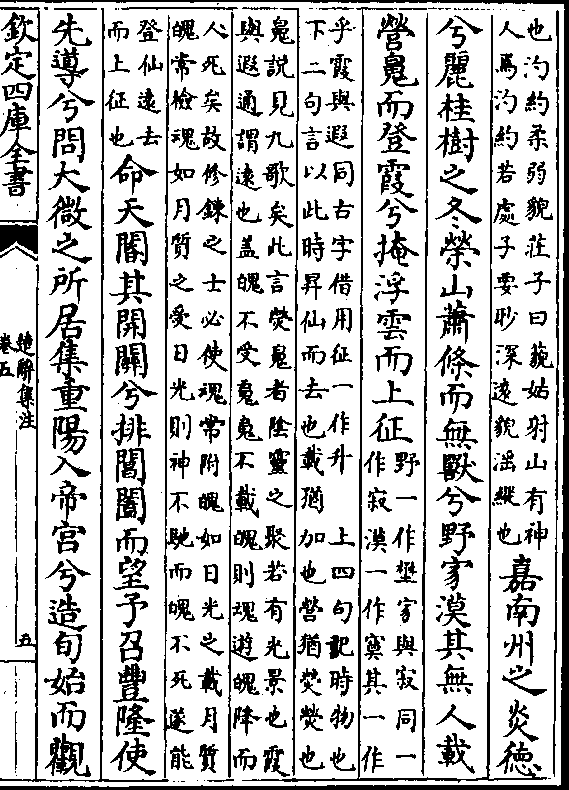 也汋約柔弱貌莊子曰藐姑射山有神
人焉汋約若處子要眇深遠貌滛縱也
嘉南州之炎德
兮麗桂樹之冬榮山蕭條而無獸兮野家漠其無人載
營䰟而登霞兮掩浮雲而上征
野一作壄家與寂同一
作寂漠一作寞其一作
乎霞與遐同古字借用征一作升　上四句記時物也
下二句言以此時昇仙而去也載猶加也營猶熒熒也
䰟說見九歌矣此言熒䰟者陰靈之聚若有光景也霞
與遐通謂遠也蓋魄不受䰟䰟不載魄則魂遊魄降而
人死矣故修錬之士必使魂常附魄如日光之載月質
魄常檢魂如月質之受日光則神不馳而魄不死遂能
登仙遠去
而上征也
命天閽其開關兮排閶闔而望予召豐隆使
先導兮問大微之所居集重陽入帝宫兮造旬始而觀
欽定四庫全書
楚辭集注
卷五
五